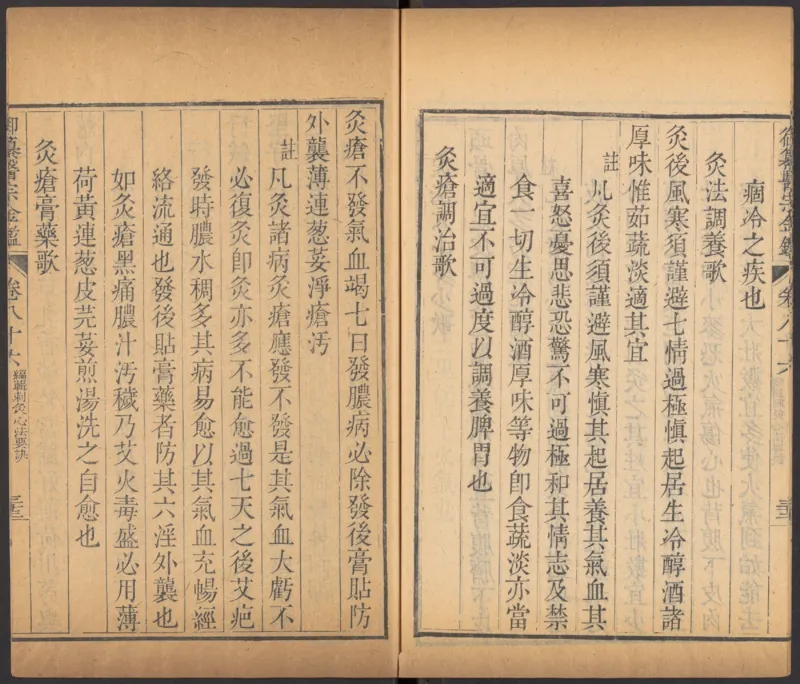 御纂醫宗金鑑 卷八十六 三十三
痼冷之疾也
灸法調養歌
灸後風寒須謹避七情過極慎起居生冷醇酒諸
厚味惟茹蔬淡適其宜
註凡灸後須謹避風寒慎其起居養其氣血其
喜怒憂思悲恐驚不可過極和其情志及禁
食一切生冷醇酒厚味等物即食蔬淡亦當
適宜不可過度以調養脾胃也
灸瘡調治歌
灸瘡不發氣血竭七日發膿病必除發後膏貼防
外襲薄連葱荽淨瘡汚
註凡灸諸病灸瘡應發不發是其氣血大虧不
必復灸即灸亦多不能愈過七天之後艾疤
發時膿水稠多其病易愈以其氣血充暢經
絡流通也發後貼膏藥者防其六淫外襲也
如灸瘡黑痛膿汁汚穢乃艾火毒盛必用薄
荷黃連葱皮芫荽煎湯洗之自愈也
灸瘡膏藥歌
御纂醫宗金鑑 卷八十六 編輯刺灸心法要訣 三十三